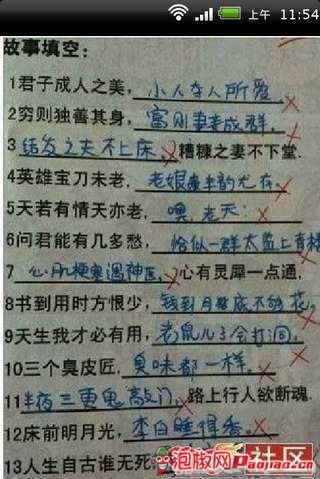 上午 11:54
故事填空：
1君子成人之美，小人夺人所爱
2穷则独善其身，富则妻妾成群.
3结发之夫不上床，糟糠之妻不下堂.
4英雄宝刀未老，老娘丰韵尤存.
5天若有情天亦老，噢,老天
6问君能有几多愁，恰似一群太监上青楼
7心肌梗塞遇神医，心有灵犀一点通，
8书到用时方恨少，钱到月底不够花.
9天生我才必有用，老鼠儿子会打洞.
10三个臭皮匠，臭味都一样.
11半夜三更鬼敲门，路上行人欲断魂.
12床前明月光，李白睡得香.
13人生自古谁无死
泡椒网 社区
Paojiao.cn